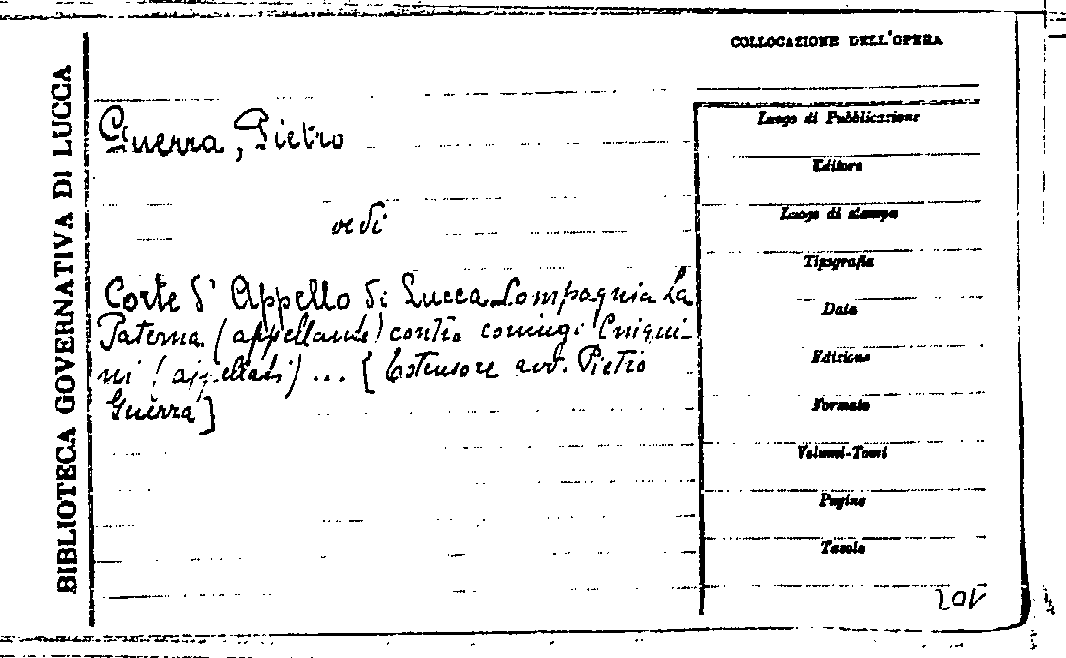 BIBLIOTECA GOVERNATIVA DI LUCCA
COLLOCAZIONE DELL'OPERA
Guerra, Pietro
vedi
Corte d'Appello di Lucca Compagnia La
Paterna (appellante) contro coniugi
(appellati) ... [Estensore avv. Pietro
Guerra]
Luogo di Pubblicazione
Editore
Luogo di stampa
Tipografia
Data
Edizione
Formato
Volumi-Tomi
Pagine
Tavole